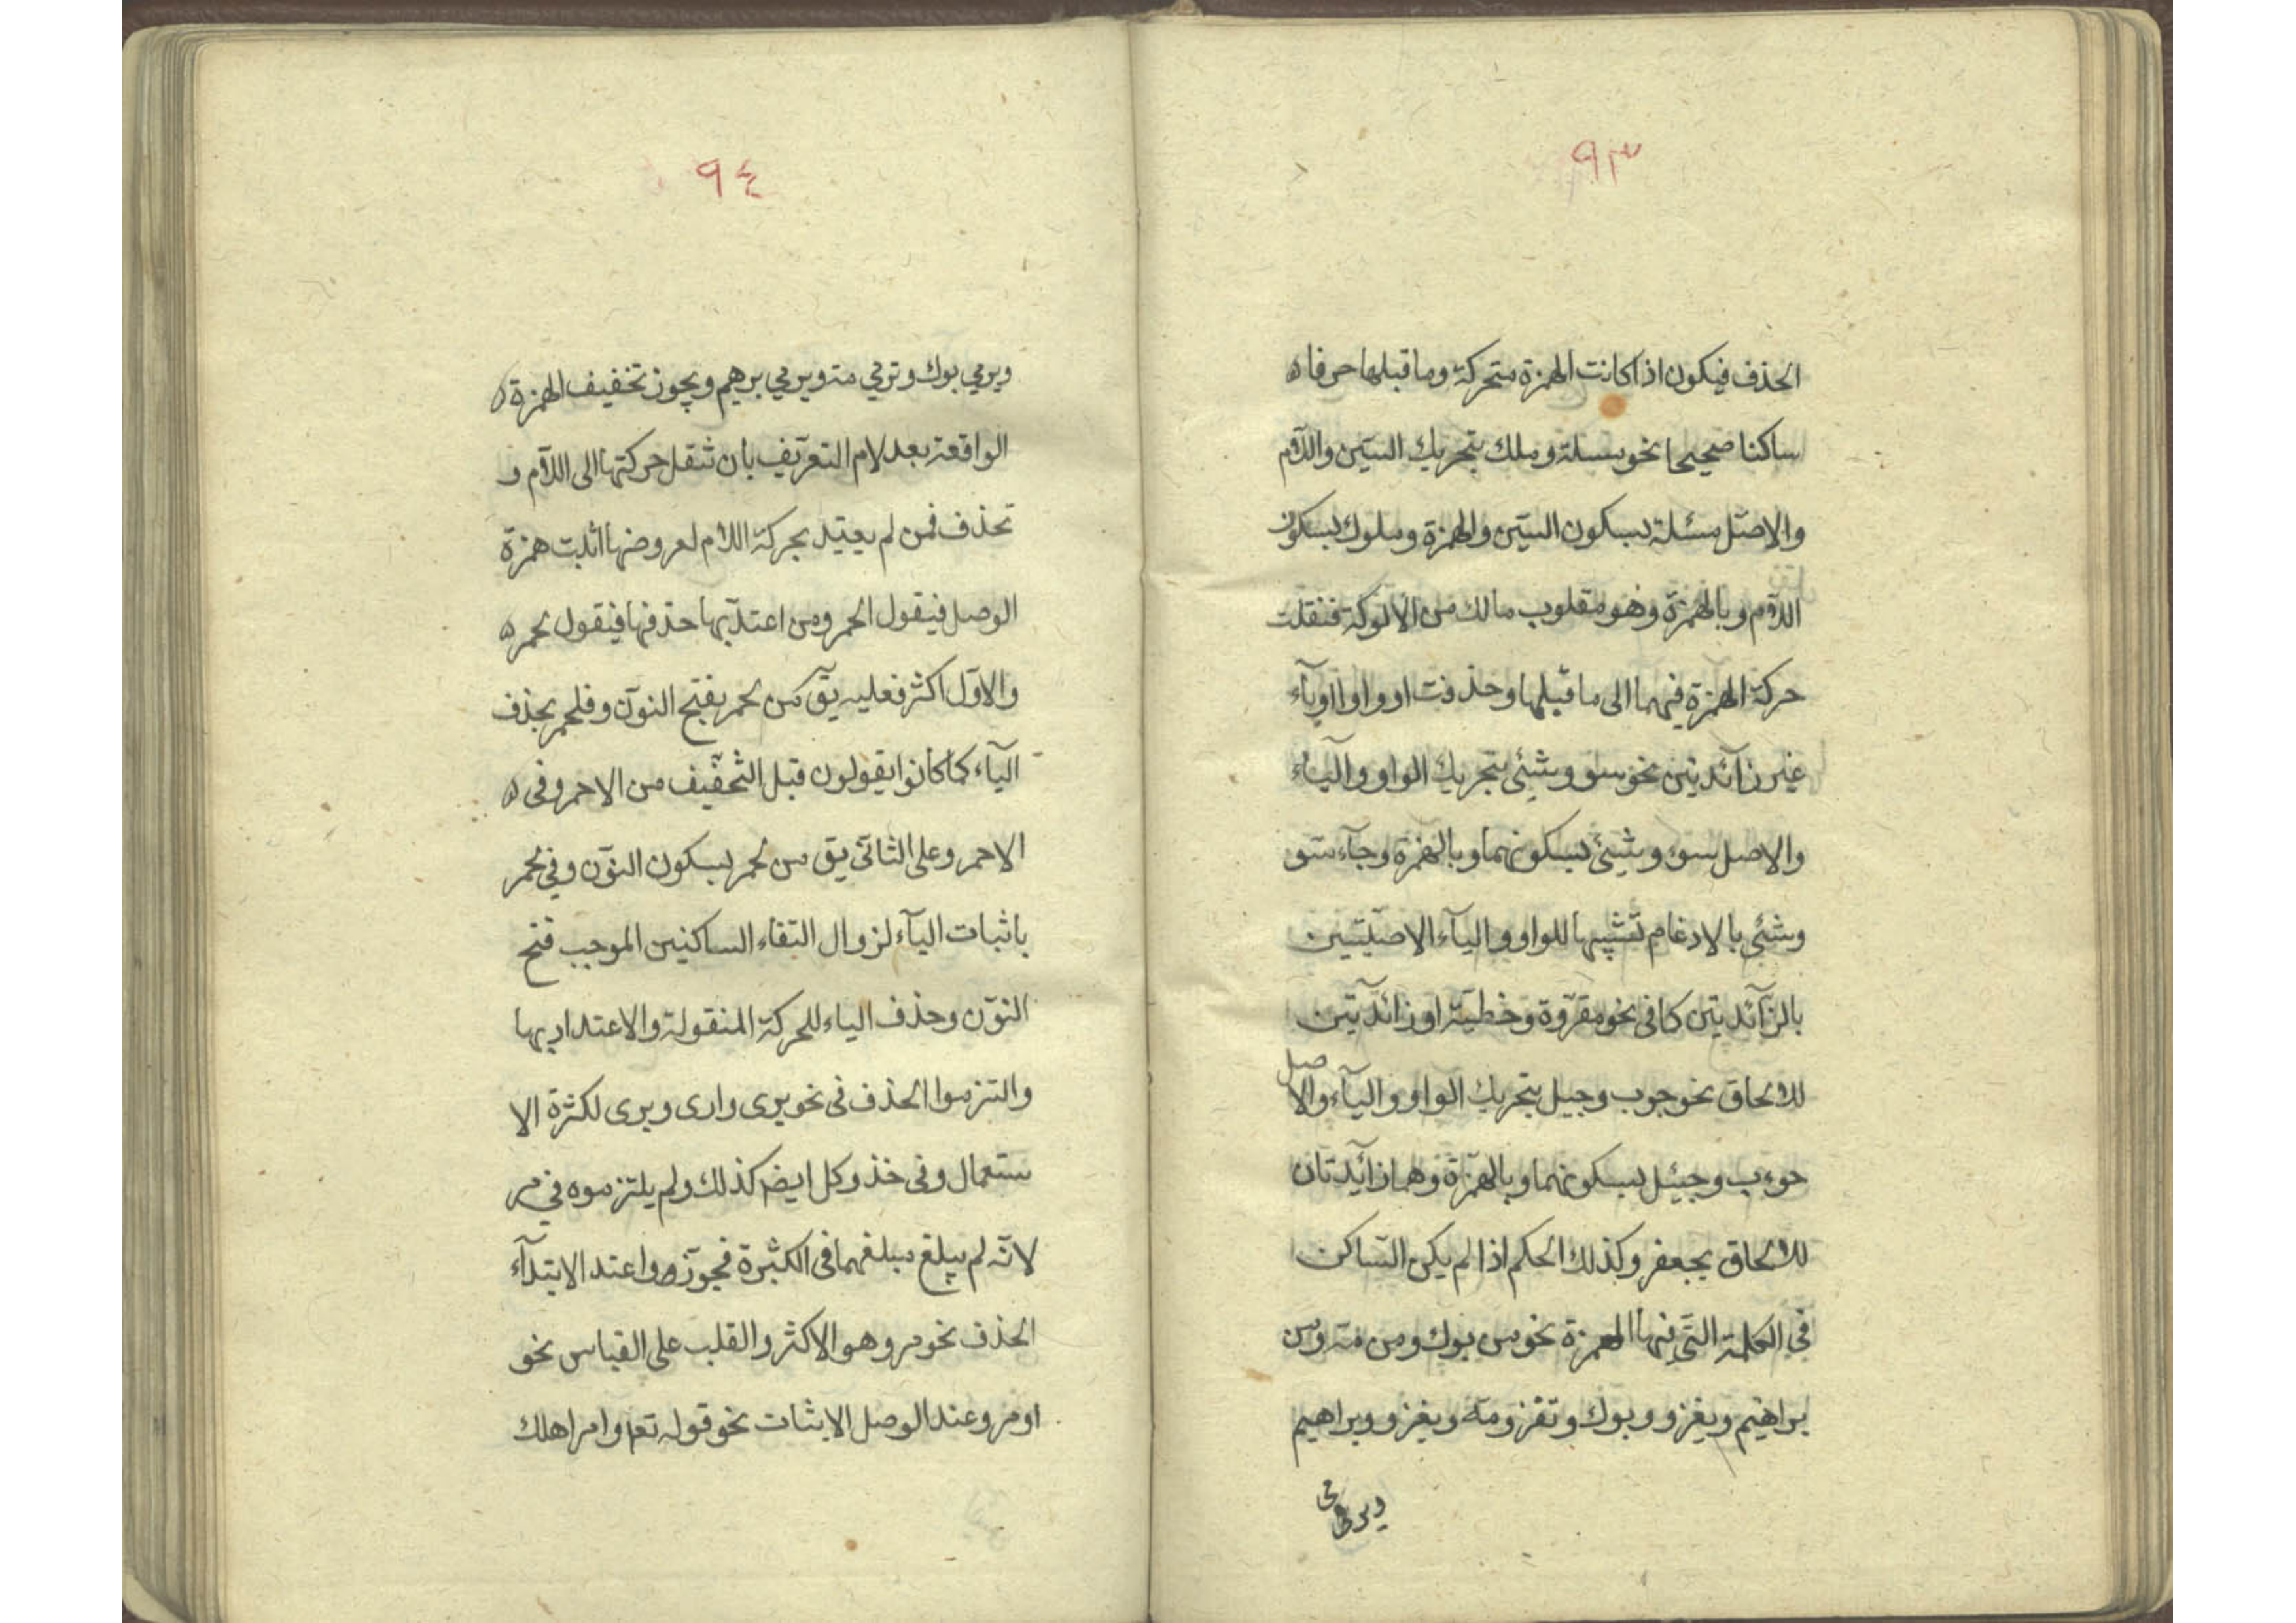 ٩٣
الحذف فيكون اذا كانت الهمزة متحركة وما قبلها حرفا
ساكنا صحيحا نحو مسلة وملك بتحريك السّين واللّام
والاصل مسئلة بسكون السّين والهمزة وملوك بسكون
اللّام وبالهمزة وهو مقلوب مالك من الالوكة فنقلت
حركة الهمزة فيهما الى ما قبلها وحذفت او واوا اوياء
غير زآئدتين نحو سو وشئ بتحريك الواو والياء
والاصل سوء وشيئ بسكونهما وبالهمزة وجآء سوّ
وشئ بالادغام تشبيها للواو واليآء الاصليّتين
بالزّآئدتين كما فى نحو مقروّة وخطيّة او زائدتين
للالحاق نحو جوب وجيل بتحريك الواو واليآء والاصل
حوءب وجيئل بسكونهما وبالهمزة وهما زآئدتان
للالحاق بجعفر وكذلك الحكم اذا لم يكن السّاكن
في الكلمة الّتي فيها الهمزة نحو من بوك ومن مّه ومن
براهيم ويغزو وبوك وتغزومّه ويغزو وبراهيم
ويرمى
٩٤
ويرمي بوك وترمي مّه ويرمي برهيم ويجوز تخفيف الهمزة
الواقعة بعد لام التعريف بان تنقل حركتها الى اللّام و
تحذف فمن لم يعتد بحركة اللام لعروضها اثبت همزة
الوصل فيقول الحمر ومن اعتدّ بها حذفها فيقول لحمر
والاوّل اكثر فعليه يق من لحمر بفتح النون وفلحمر بحذف
اليآء كما كانوا يقولون قبل التّخفيف من الاحمر وفى
الاحمر وعلى الثانى يق من لحمر بسكون النون وفي لحمر
باثبات اليآء لزوال التقاء الساكنين الموجب فتح
النون وحذف الياء للحركة المنقولة والاعتداد بها
والتزموا الحذف فى نحو يرى وارى ويرى لكثرة الا
ستعمال وفى خذ وكل ايضم كذلك ولم يلتزموه في مر
لانّه لم يبلغ مبلغهما فى الكثرة فجوّزوا عند الابتدآء
الحذف نحو مر وهو الاكثر والقلب على القياس نحو
اومر وعند الوصل الاثبات نحو قوله تعم وامر اهلك